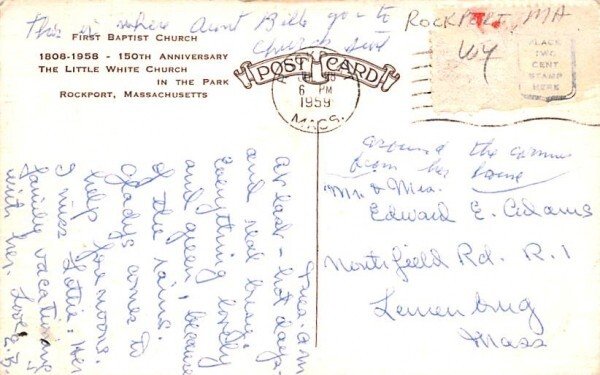 This is where Aunt Bill go to
Church
ROCKPORT, MA
FIRST BAPTIST CHURCH
1808-1958 - 150TH ANNIVERSARY
THE LITTLE WHITE CHURCH
IN THE PARK
ROCKPORT, MASSACHUSETTS
POST CARD
6 PM
1959
MASS.
PLACE
TWO
CENT
STAMP
HERE
around the corner
from her home
Mr. & Mrs.
Edward E. Adams
Northfield Rd. R. 1
Lunenburg
Mass
Tues. a.m
At last - hot days
and real sun.
Everything lovely
and green, because
of the rains.
Gladys comes to
help forenoons.
I miss Lottie. Her
family vacationing
with her. Love,